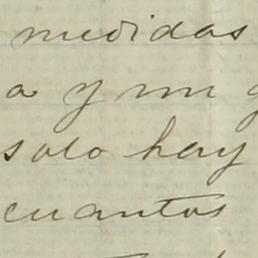 medidas
a y mi
solo hay
cuantos